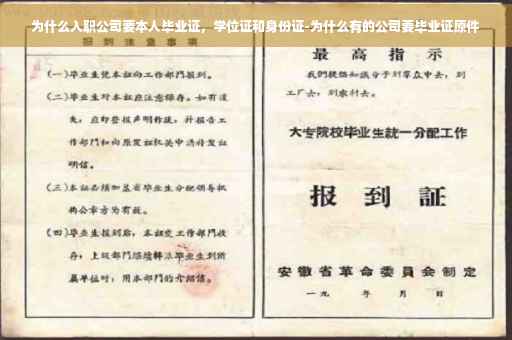 为什么入职公司要本人毕业证，学位证和身份证-为什么有的公司要毕业证原件
报到注意事项
(一)毕业生凭本证向工作部门报到。
(二)毕业生对本证应注意保存。如有遗
失，应即登报声明作废，并报告工
作部门和向原发证机关申请补发证
明信。
(三)本证必须加盖省毕业生分配领导机
构公章方为有效。
(四)毕业生报到后，本证交工作部门收
存；上级部门继续转派毕业生到所
属单位时，用本部门的介绍信。
最高指示
我们提倡知识分子到群众中去，到
工厂去，到农村去。
大专院校毕业生統一分配工作
报到証
安徽省革命委員会制定
一九 年 月 日